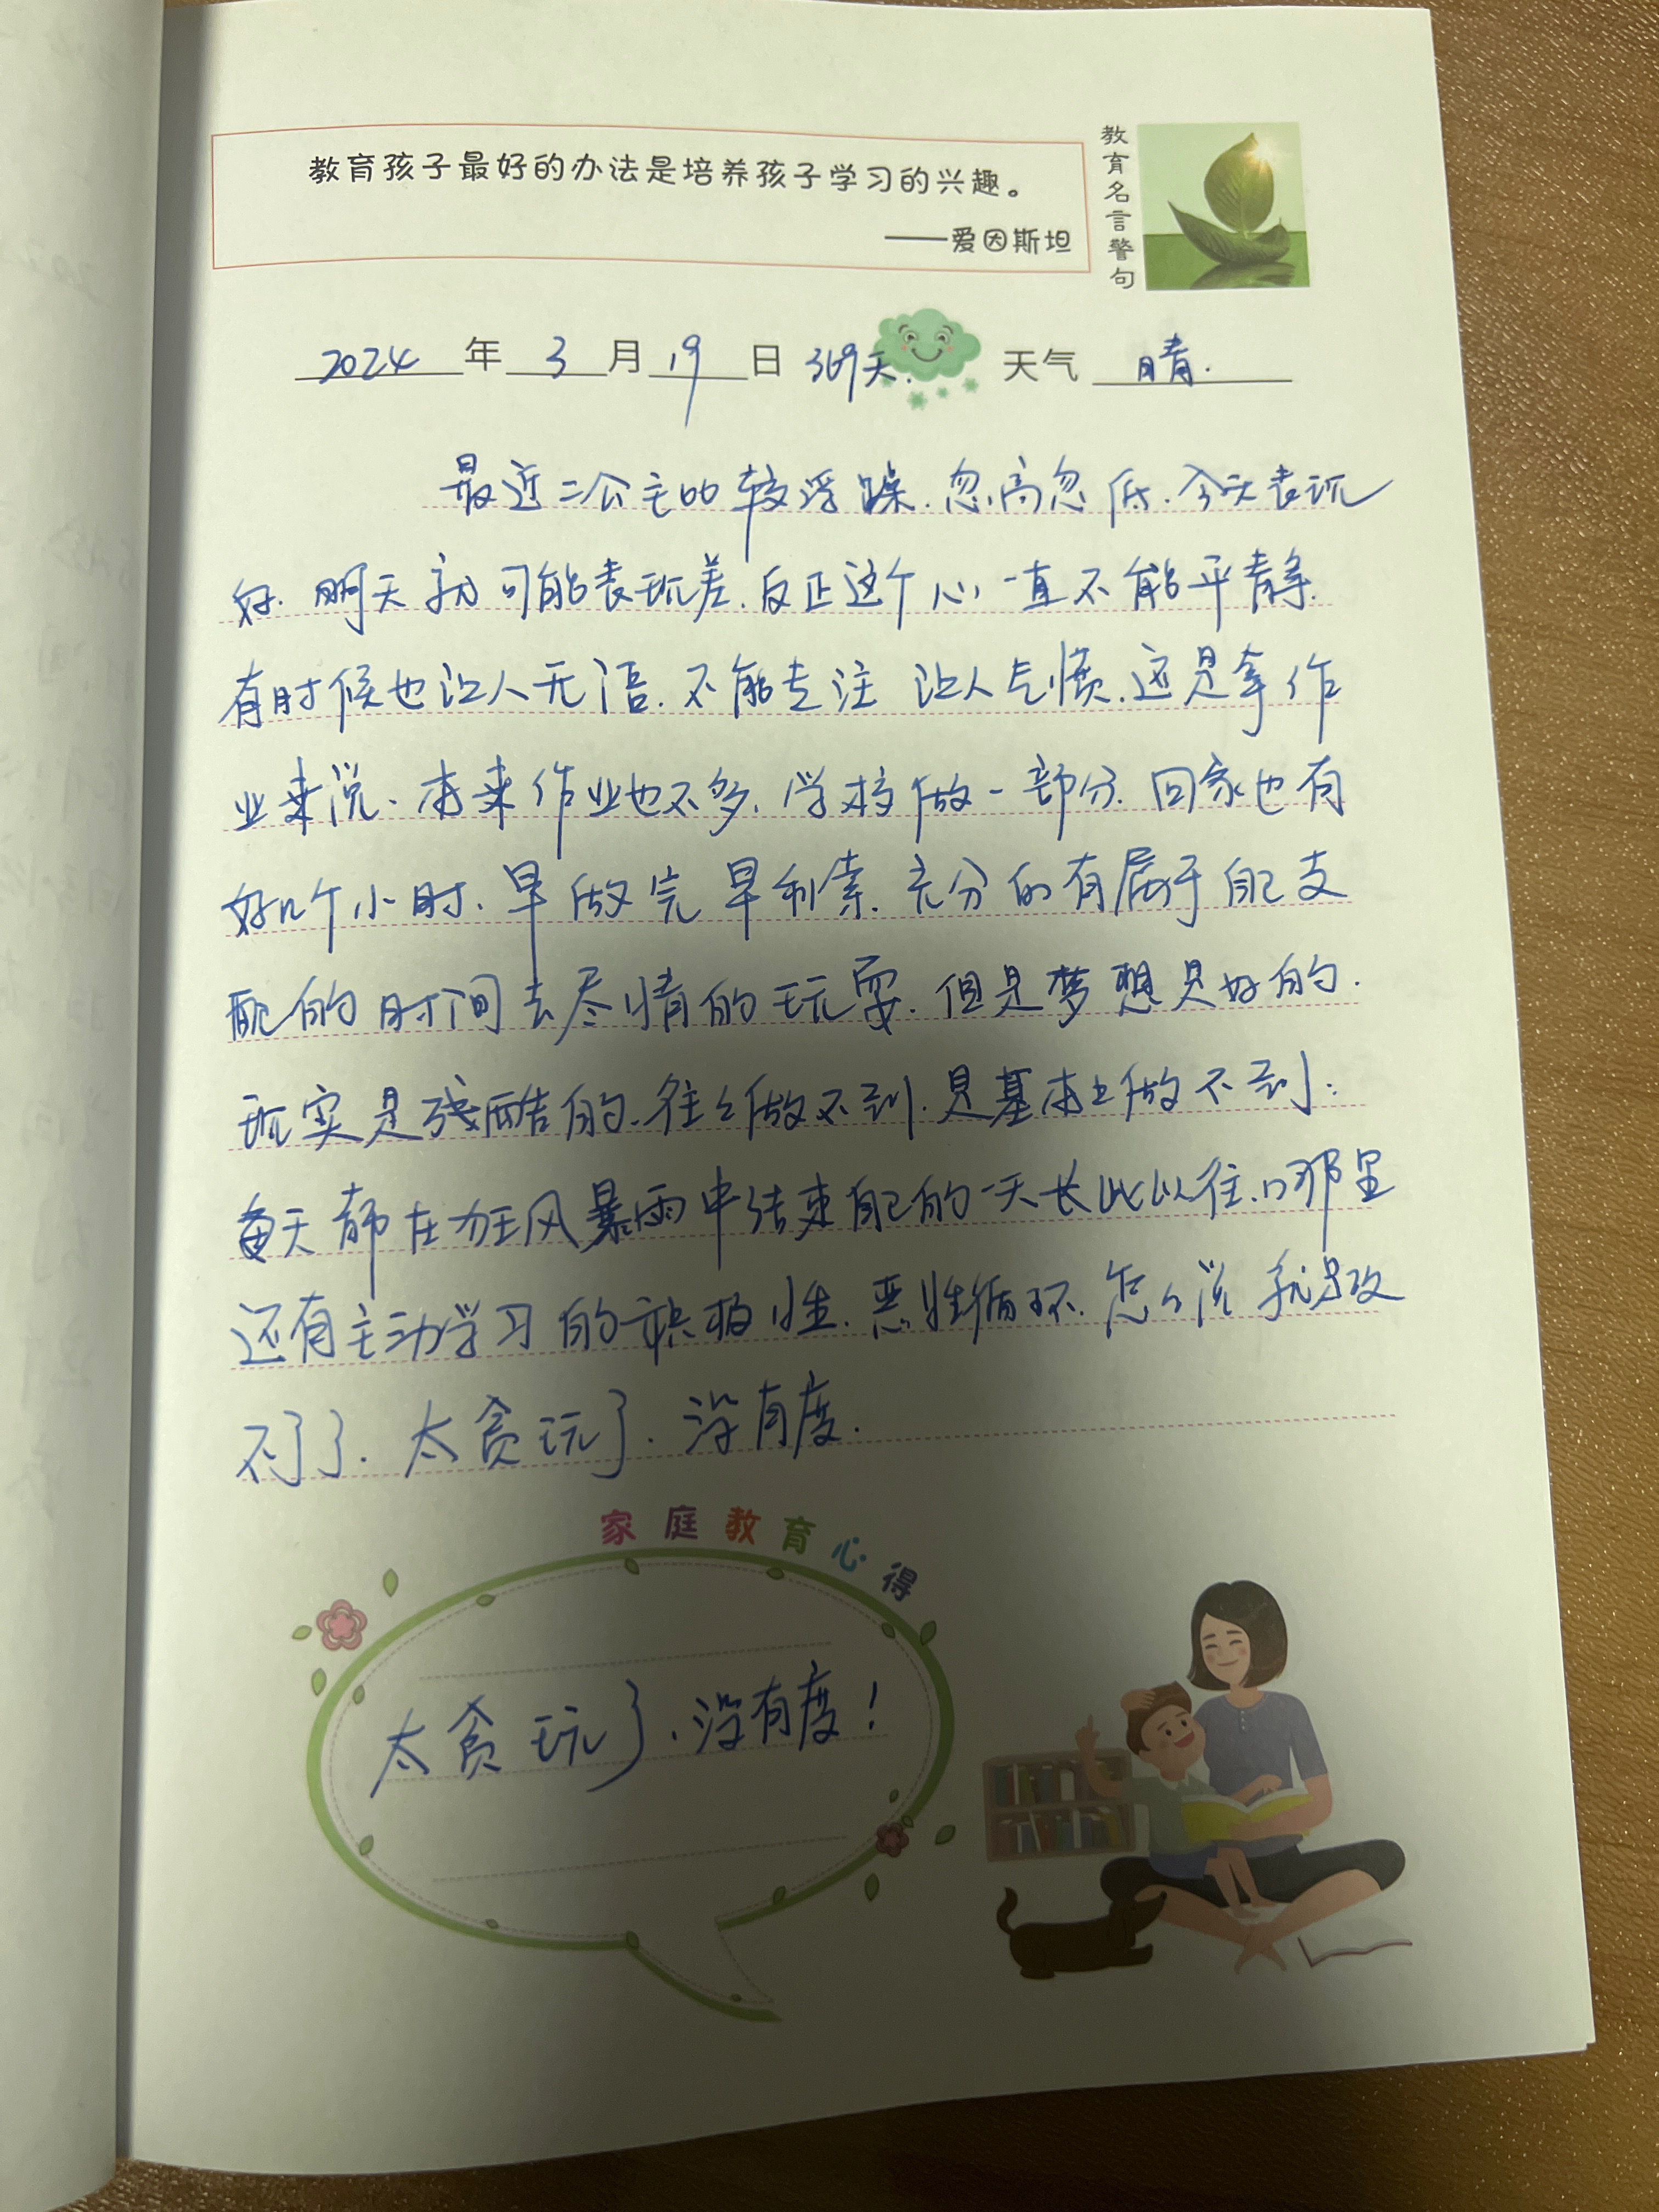 教育孩子最好的办法是培养孩子学习的兴趣。
——爱因斯坦
教育名言警句
2024年3月19日 369天. 天气 晴.
最近二公主比较浮躁.忽高忽低.今天表现
好.明天就可能表现差.反正这个心一直不能平静.
有时候也让人无语.不能专注 让人气愤.还是拿作
业来说、本来作业也不多.学校做一部分.回家也有
好几个小时.早做完早利索.充分的有属于自己支
配的时间去尽情的玩耍.但是梦想是好的.
现实是残酷的.往々做不到.是基本上做不到:
每天都在狂风暴雨中结束自己的一天长此以往.哪里
还有主动学习的积极性.恶性循环.怎么说就是改
不了了.太贪玩了.没有度.
家庭教育心得
太贪玩了.没有度!